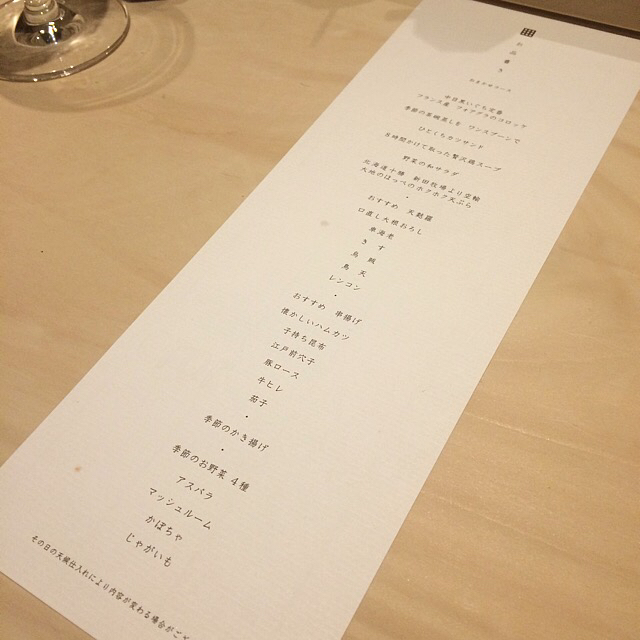 お品書き
おまかせコース
本日真いぐち定番
フランス産 フォアグラのコロッケ
季節の茶碗蒸しを ワンスプーンで
ひとくちカッサンド
8時間かけて取った贅沢鶏スープ
野菜の和サラダ
北海道十勝 新田牧場より空輸
大地のほっぺのホクホク天ぷら
・
おすすめ 天麩羅
口直し大根おろし
車海老
きす
烏賊
鳥天
レンコン
・
おすすめ 串揚げ
懐かしいハムカツ
子持ち昆布
江戸前穴子
豚ロース
牛ヒレ
茄子
・
季節のかき揚げ
・
季節のお野菜 4種
アスパラ
マッシュルーム
かぼちゃ
じゃがいも
その日の天候仕入れにより内容が変わる場合がござ